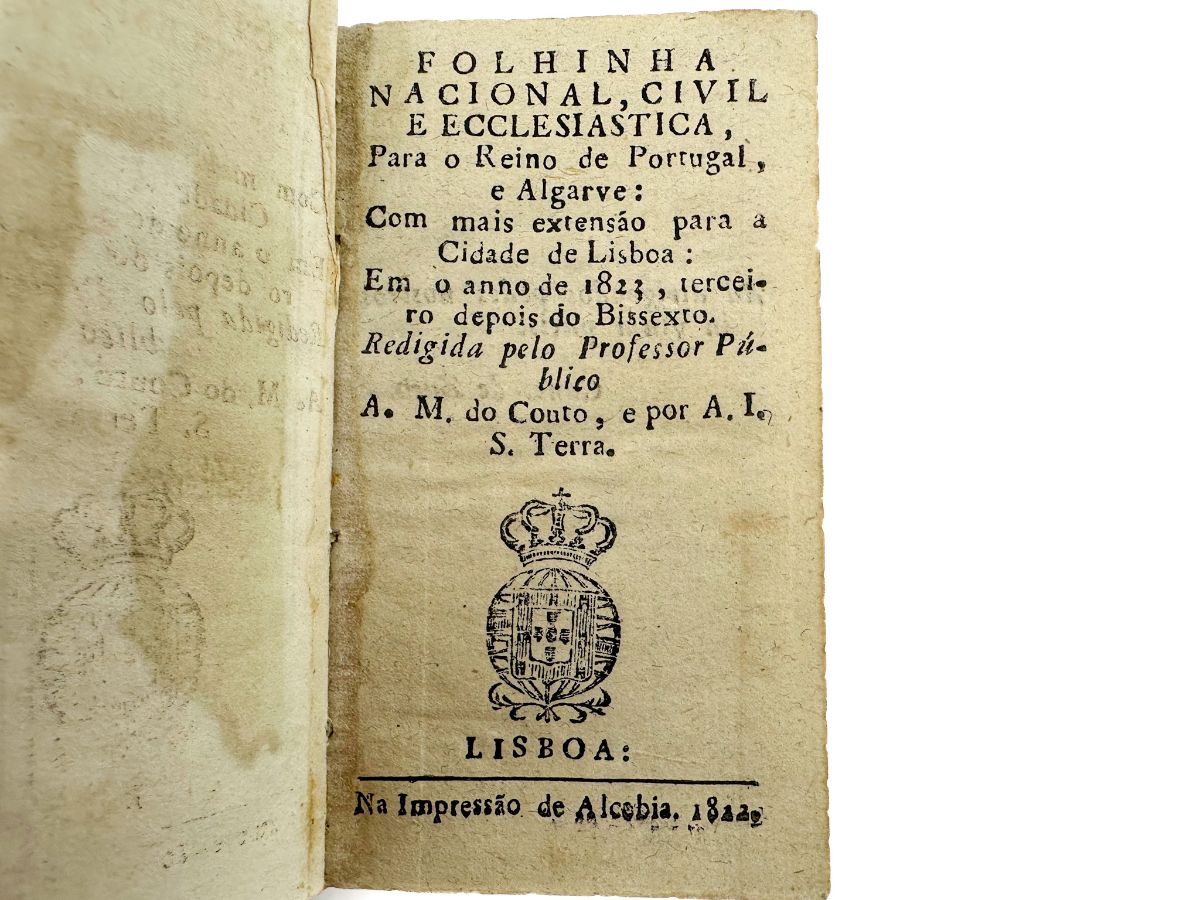 FOLHINHA
NACIONAL, CIVIL
E ECCLESIASTICA,
Para o Reino de Portugal,
e Algarve:
Com mais extensão para a
Cidade de Lisboa:
Em o anno de 1823, tercei-
ro depois do Bissexto.
Redigida pelo Professor Pú-
blico
A. M. do Couto, e por A. I.
S. Terra.
LISBOA:
Na Impressão de Alcobia. 1822.